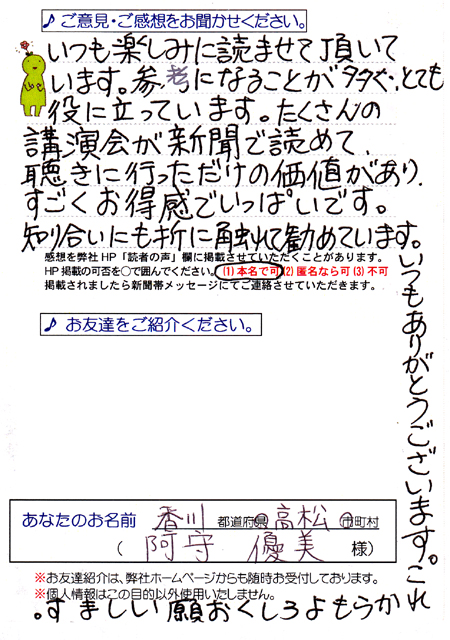 ♪ ご意見・ご感想をお聞かせください。
いつも楽しみに読ませて頂いて
います。参考になることが多く、とても
役に立っています。たくさんの
講演会が新聞で読めて、
聴きに行っただけの価値があり、
すごくお得感でいっぱいです。
知り合いにも折に触れて勧めています。
いつもありがとうございます。これ
からもよろしくお願いします。
感想を弊社HP「読者の声」欄に掲載させていただくことがあります。
HP掲載の可否を○で囲んでください。(1)本名で可(2)匿名なら可(3)不可
掲載されましたら新聞帯メッセージにてご連絡させていただきます。
♪ お友達をご紹介ください。
あなたのお名前 香川 都道府県 高松 市町村
( 阿守 優美 様)
※お友達紹介は、弊社ホームページからも随時お受付しております。
※個人情報はこの目的以外使用いたしません。